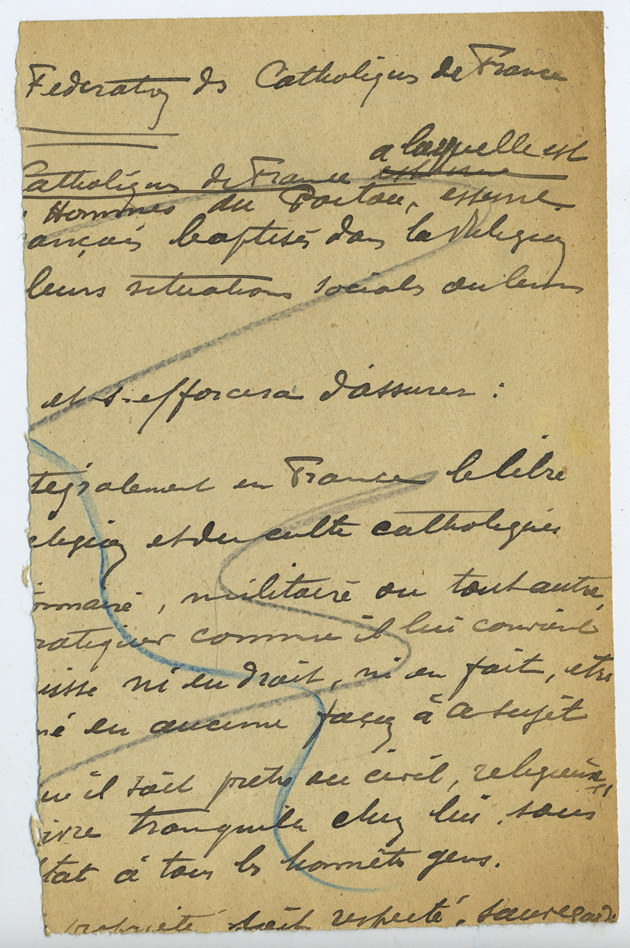 Federation des Catholiques de France
a laquelle est
Catholiques de France est une
Hommes du Poitou,
ançais baptisés dans la Religion
leurs situations sociales ou leurs
et s'efforcera d'assurer :
tégralement en France le libre
eligion et du culte catholiques
onnaire, militaire ou tout autre,
ratiquer comme il lui convient
uisse ni en droit, ni en fait, être
né en aucune façon à ce sujet
qu'il soit prêtre ou civil, religieux,
ivre tranquille chez lui, sous
état à tous les honnêtes gens.
propriété soit respecté, sauvegardé